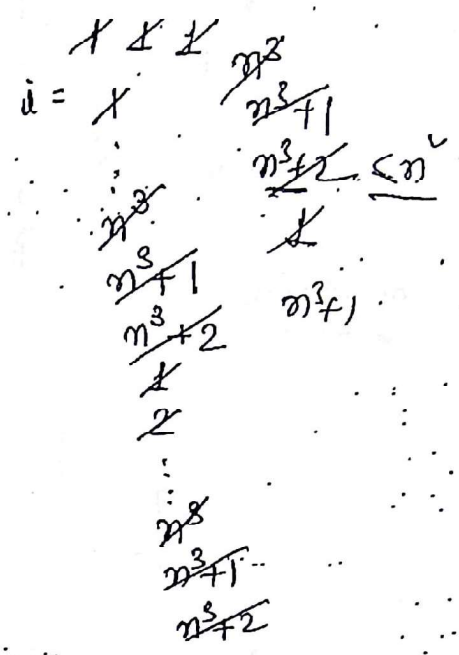 1 1 1
i = 1
⋮
n³
n³+1
n³+2
1
2
⋮
n³
n³+1
n³+2
n³
n³+1
n³+2 ≤n²
1
n³+1